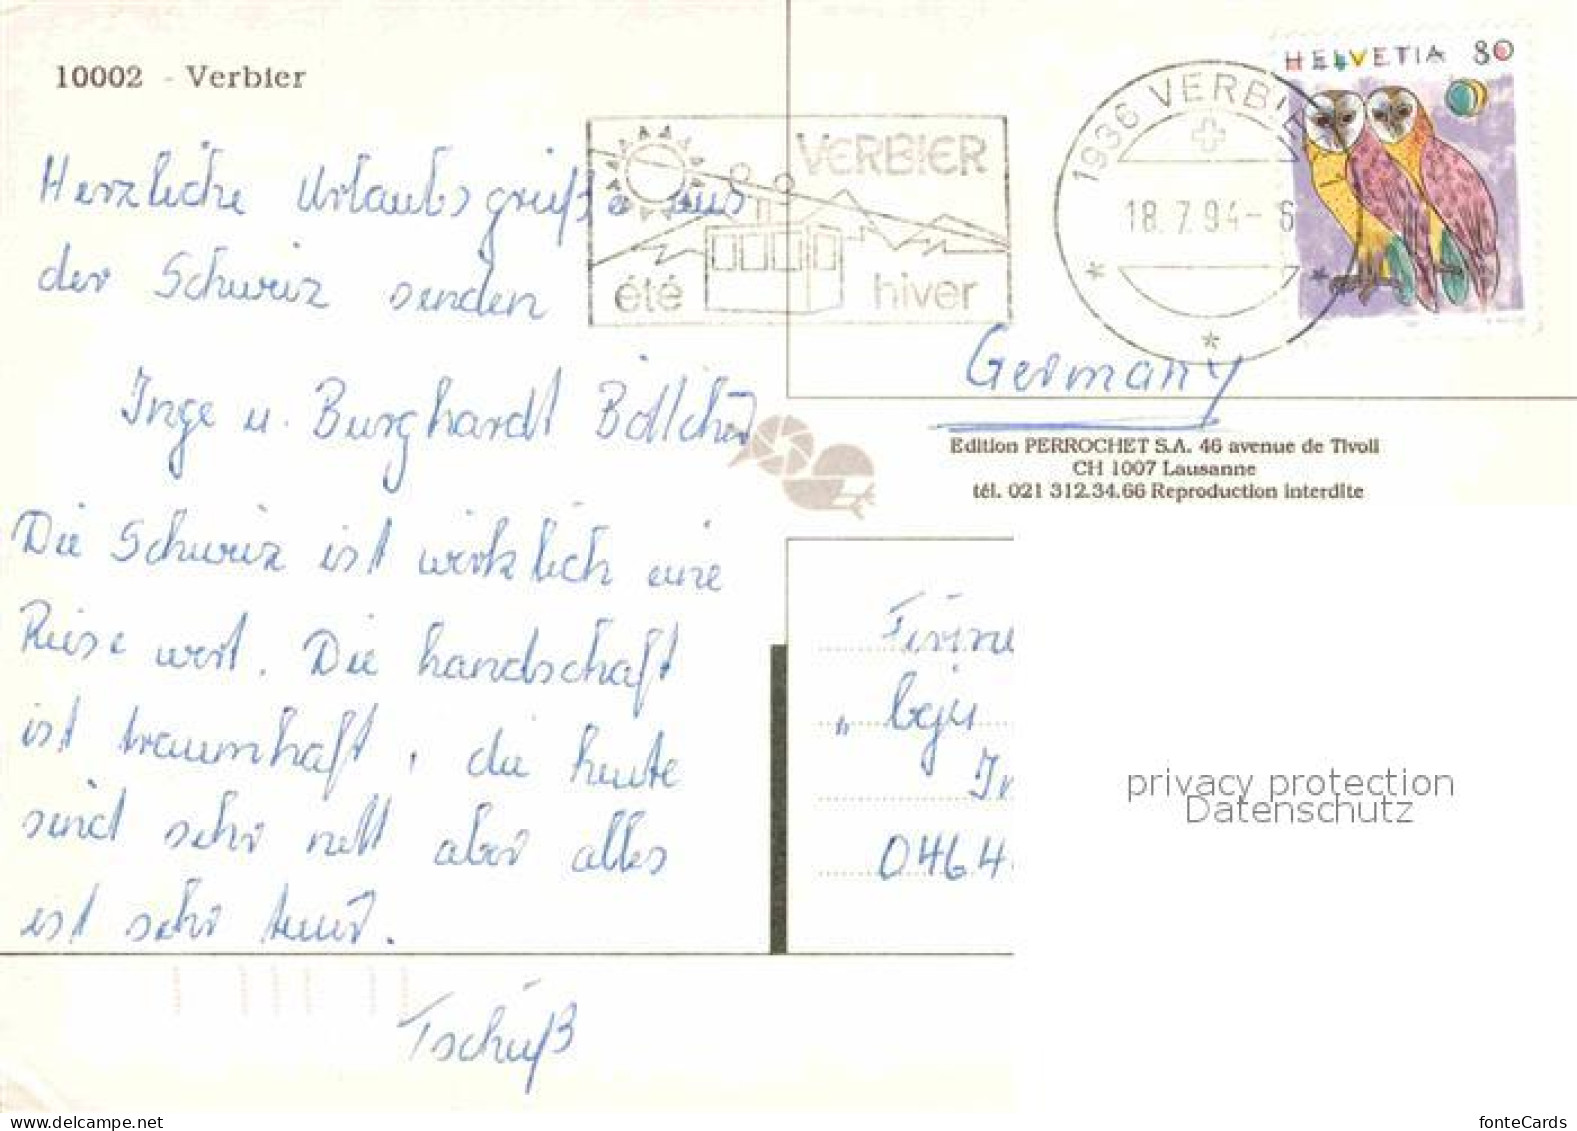 10002 - Verbier
HELVETIA 80
1936 VERBIER
18.7.94-6
VERBIER
été hiver
Herzliche Urlaubsgrüße aus
der Schweiz senden
Inge u. Burghardt Böttcher
Die Schweiz ist wirklich eine
Reise wert. Die Landschaft
ist traumhaft, die Leute
sind sehr nett aber alles
ist sehr teuer.
Tschüß
Germany
Edition PERROCHET S.A. 46 avenue de Tivoli
CH 1007 Lausanne
tél. 021 312.34.66 Reproduction interdite
Firme
0464
privacy protection
Datenschutz
delcampe.net
fonteCards